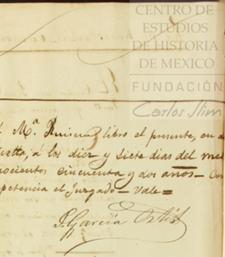 CENTRO DE
ESTUDIOS
DE HISTORIA
DE MEXICO
FUNDACIÓN
Carlos Slim
Mª. libro el presente, en
a los diez y siete dias del
cincuenta y dos años
el Juzgado - Vale =
J. García